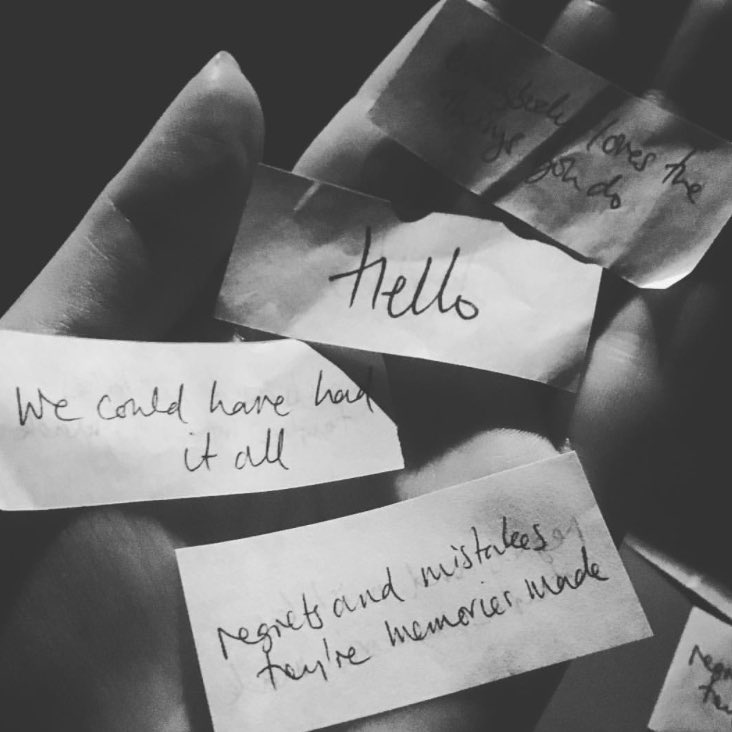 Everybody loves the
things you do
Hello
We could have had
it all
regrets and mistakes
they're memories made
regr
they